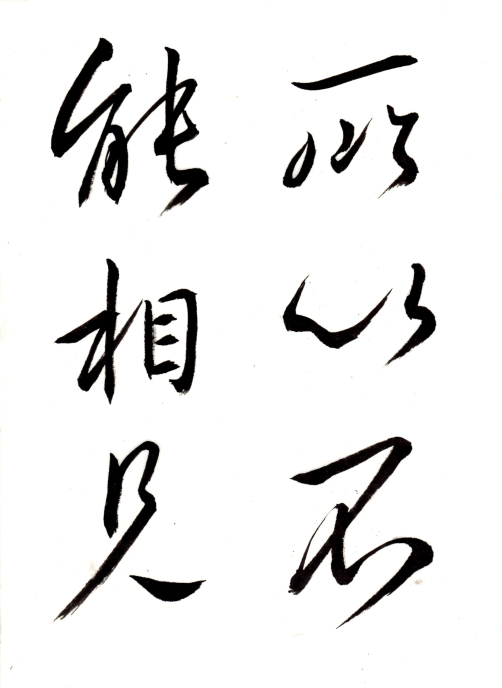 所以不
能相見